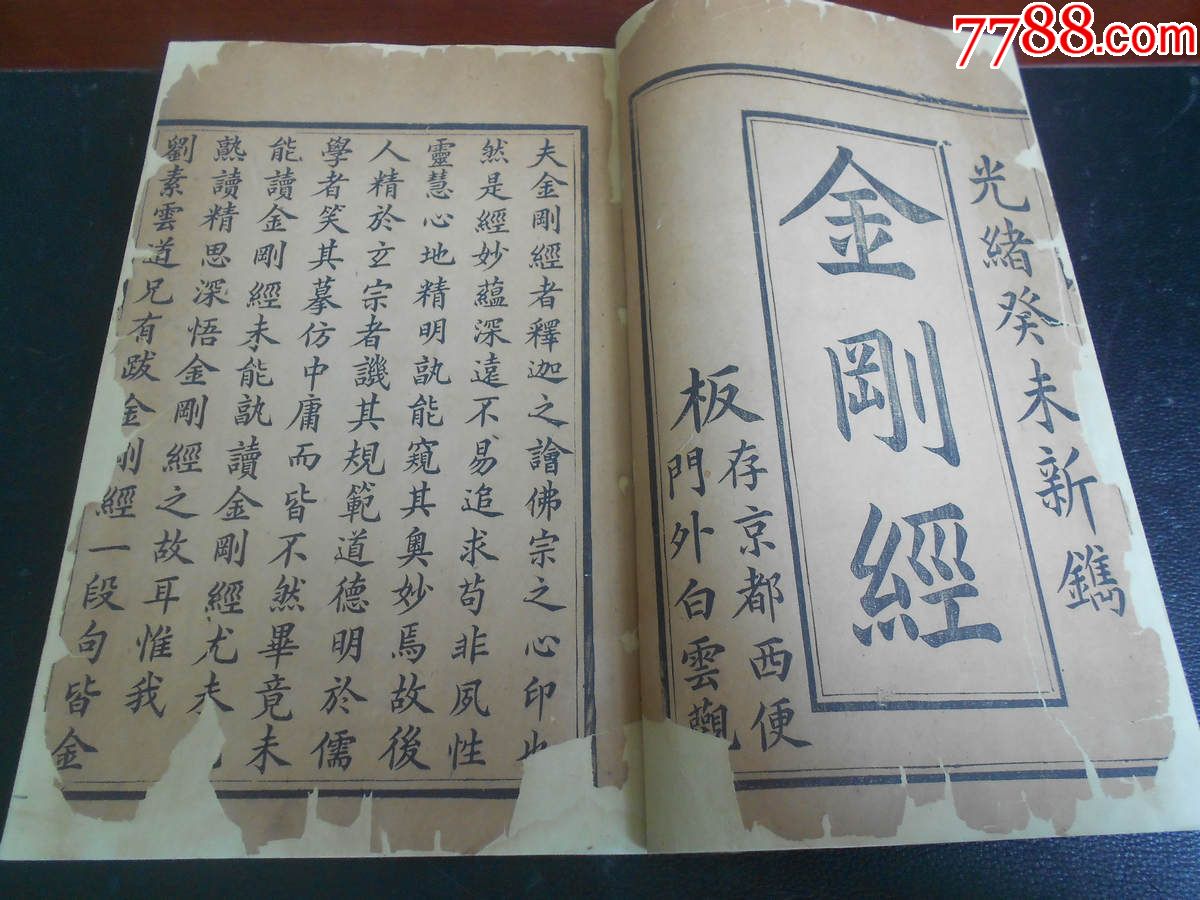 7788.com
光緒癸未新鐫
金剛經
板存京都西便
門外白雲觀
夫金剛經者釋迦之譮佛宗之心印也
然是經妙蘊深遠不易追求苟非夙性
靈慧心地精明孰能窺其奧妙焉故後
人精於玄宗者譏其規範道德明於儒
學者笑其摹仿中庸而皆不然畢竟未
能讀金剛經未能孰讀金剛經尤夫
熟讀精思深悟金剛經之故耳惟我
劉素雲道兄有跋金剛經一段句皆金